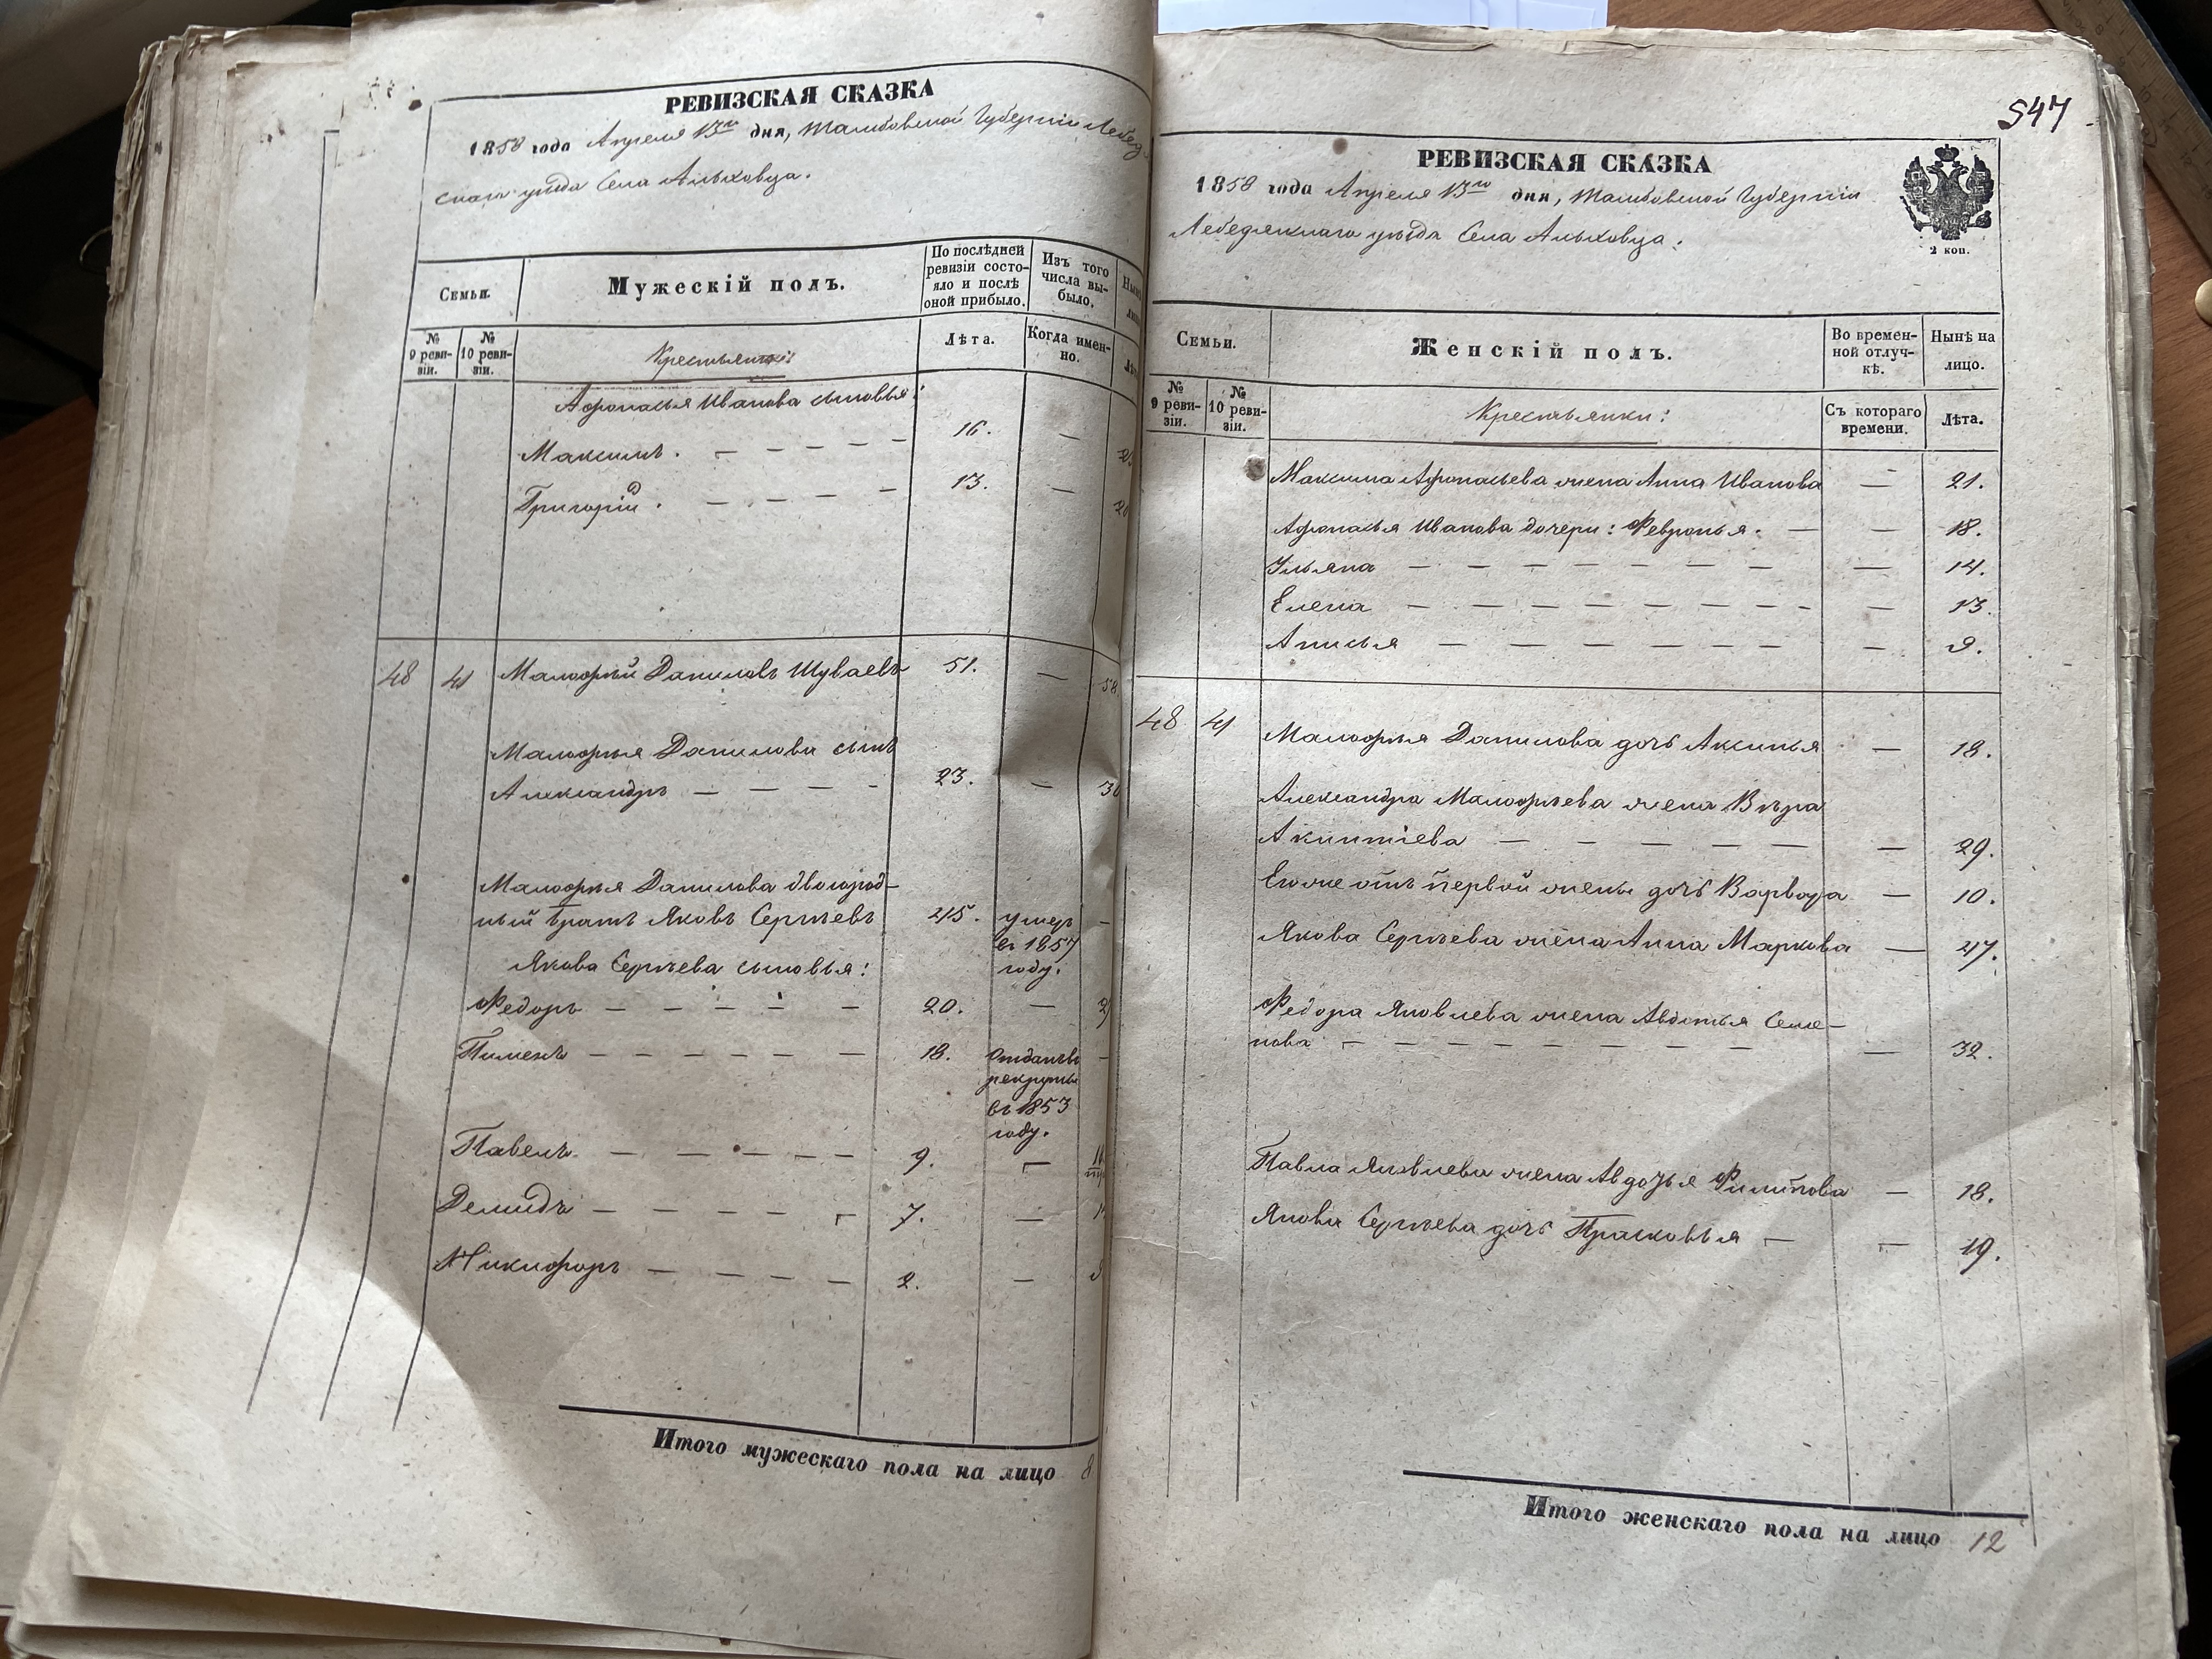 РЕВИЗСКАЯ СКАЗКА
1858 года Апреля 13го дня, Тамбовской Губерніи Лебед
скаго уѣзда Села Ольховца.
Семьи.
Мужескій полъ.
По послѣдней ревизіи состо-
яло и послѣ
оной прибыло.
Изъ того
числа вы-
было.
№ 9 реви-
зіи.
№ 10 реви-
зіи.
Крестьяне:
Лѣта.
Когда имен-
но.
Афонасья Иванова сыновья:
Максимъ. — — — — 16. —
Григорій. — — — — 13. —
48 41 Малофѣй Даниловъ Шуваевъ 51. — 58.
Малофѣя Данилова сынъ
Александръ — — — — 23. — 30
Малофѣя Данилова двоюрод-
ный братъ Яковъ Сергѣевъ 45. умеръ —
въ 1857
году.
Якова Сергѣева сыновья:
Федоръ — — — — — 20. —
Пименъ — — — — — 18. отданъ въ —
рекруты
въ 1853
году.
Павелъ — — — — — 9. —
Демидъ — — — — — 7. —
Никифоръ — — — — 2. —
Итого мужескаго пола на лицо 8
547
РЕВИЗСКАЯ СКАЗКА
1858 года Апреля 13го дня, Тамбовской Губерніи
Лебедянскаго уѣзда Села Ольховца:
2 коп.
Семьи.
Женскій полъ.
Во времен-
ной отлуч-
кѣ.
Нынѣ на
лицо.
№ 9 реви-
зіи.
№ 10 реви-
зіи.
Крестьянки:
Съ котораго
времени.
Лѣта.
Максима Афонасьева жена Анна Иванова — 21.
Афонасья Иванова дочери: Февронья. — — 18.
Ульяна — — — — — — — — 14.
Елена — — — — — — — — 13.
Анисья — — — — — — — 9.
48 41 Малофѣя Данилова дочь Аксинья — 18.
Александра Малофѣева жена Вѣра
Акинтіева — — — — — — 29.
Егоже отъ первой жены дочь Варвара — 10.
Якова Сергѣева жена Анна Маркова — 47.
Федора Яковлева жена Авдотья Семе-
нова — — — — — — — — — 32.
Павла Яковлева жена Авдотья Филипова — 18.
Якова Сергѣева дочь Прасковья — — 19.
Итого женскаго пола на лицо 12